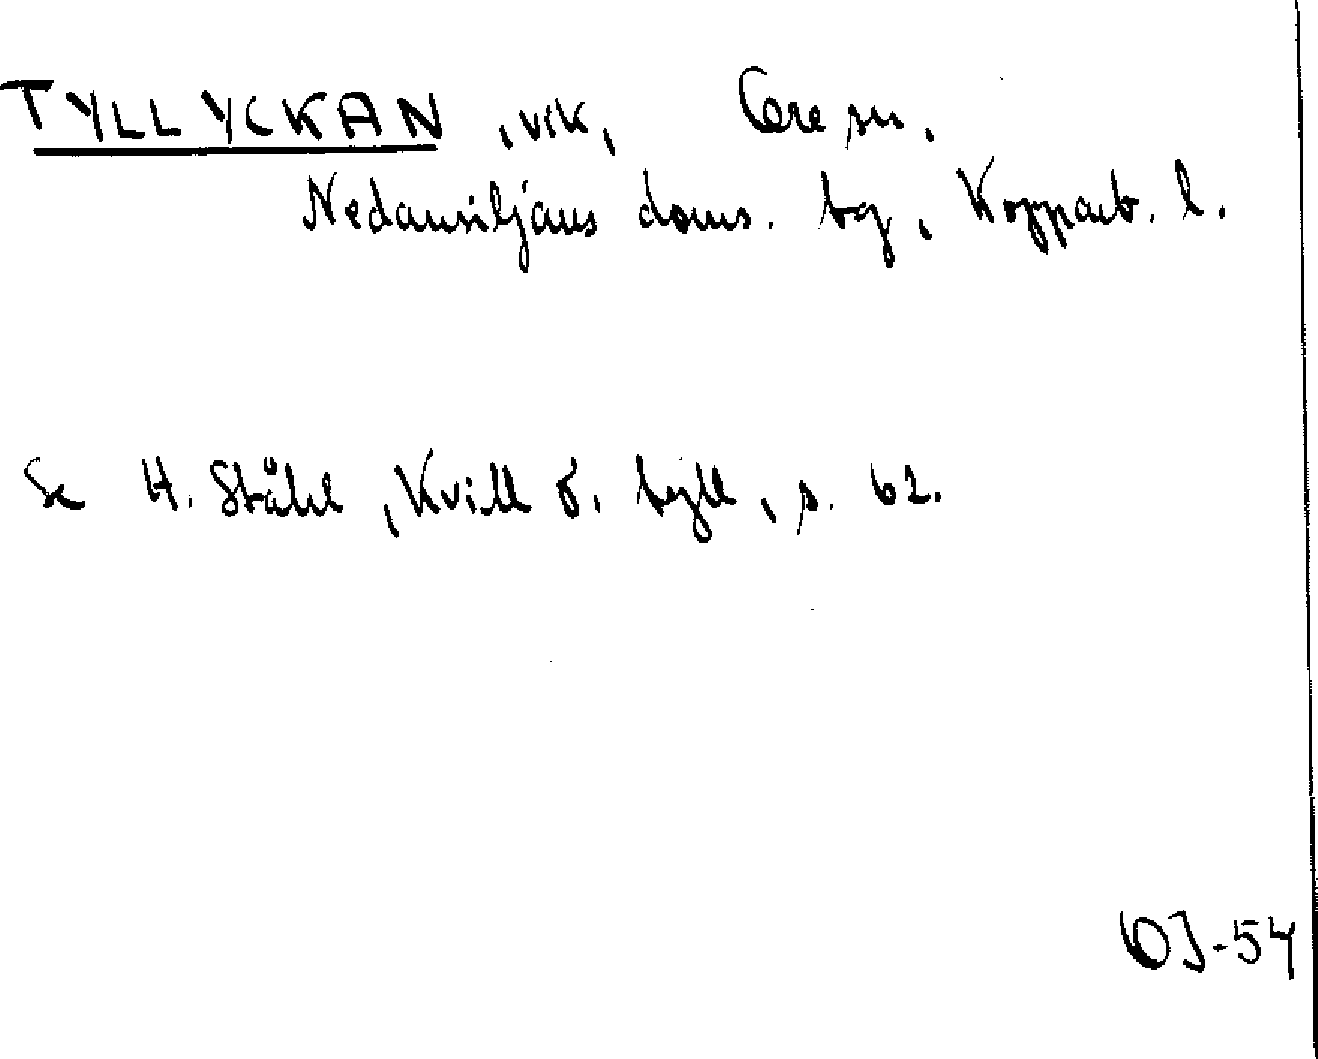 TYLLYCKAN, vik, Ore sn.
Nedansiljans doms. tg, Kopparb. l.
Se H. Ståhl, Kvill o. tyll, s. 62.
OJ-54